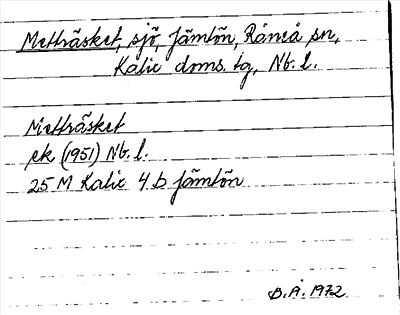 Metträsket, sjö, Jämtön, Råneå sn,
Kalix doms. tg, Nb. l.
Metträsket
ek (1951) Nb. l.
25 M Kalix 4 b Jämtön
B.Å. 1972